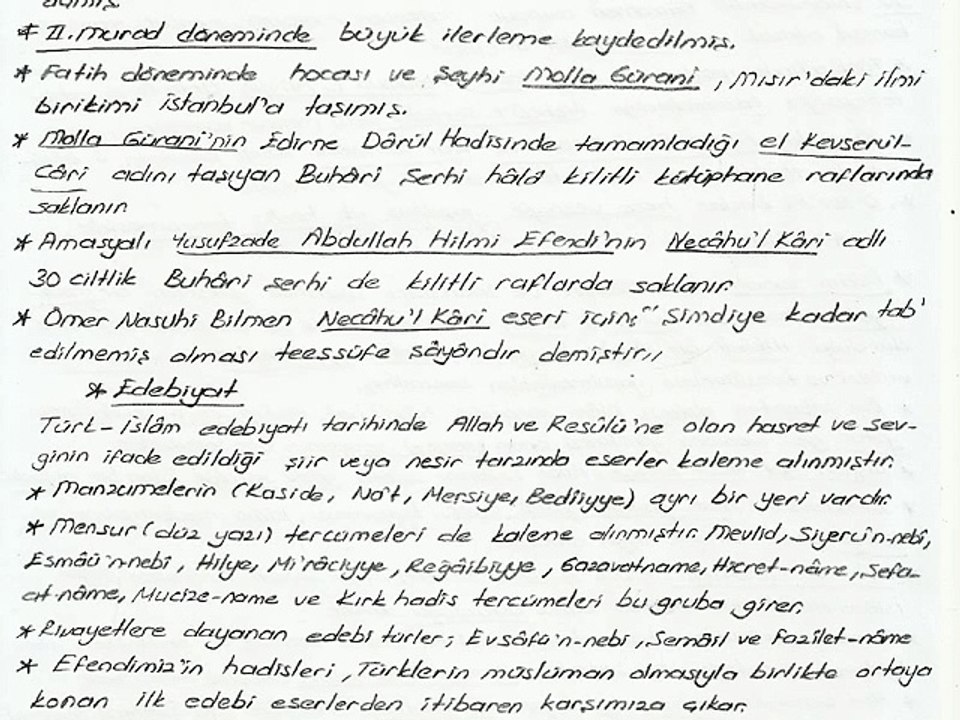 * II. murad döneminde büyük ilerleme kaydedilmiş.
* Fatih döneminde hocası ve Şeyhi Molla Gürani, Mısır'daki ilmi
birikimi İstanbul'a taşımış.
* Molla Gürani'nin Edirne Dârül Hadisinde tamamladığı el Kevserül-
Câri adını taşıyan Buhâri Şerhi hâlâ kilitli kütüphane raflarında
saklanır
* Amasyalı Yusufzade Abdullah Hilmi Efendi'nin Necâhu'l Kâri adlı
30 ciltlik Buhâri şerhi de kilitli raflarda saklanır.
* Ömer Nasuhi Bilmen Necâhu'l Kâri eseri için; "Şimdiye kadar tab'
edilmemiş olması teessüfe şâyândır demiştir,,
* Edebiyat
Türk-islâm edebiyatı tarihinde Allah ve Resülü'ne olan hasret ve sev-
ginin ifade edildiği şiir veya nesir tarzında eserler kaleme alınmıştır.
* Manzumelerin (Kaside, Na't, Mersiye, Bediiyye) ayrı bir yeri vardır.
* Mensur (düz yazı) tercümeleri de kaleme alınmıştır. Mevlid, Siyerü'n-nebî,
Esmâü'n-nebî, Hilye, Mi'râciyye, Reğâibiyye, Gazavatname, Hicret-nâme, Şefa-
at-nâme, Mucize-name ve Kırk hadis tercümeleri bu gruba girer.
* Rivayetlere dayanan edebi türler; Evsâfü'n-nebi, Şemâil ve Fazilet-nâme
* Efendimiz'in hadisleri, Türklerin müslüman olmasıyla birlikte ortaya
konan ilk edebi eserlerden itibaren karşımıza çıkar.